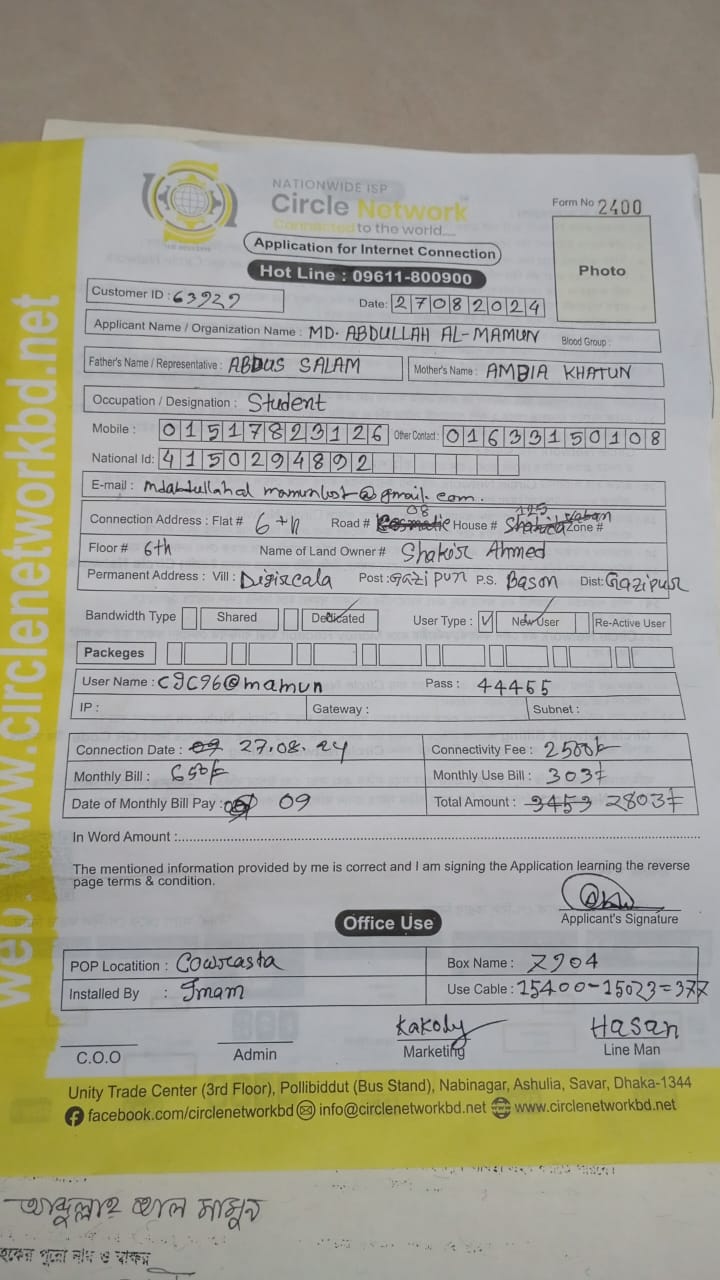 NATIONWIDE ISP
Circle Network
Connected to the world....
Form No 2400
Application for Internet Connection
Hot Line : 09611-800900
Photo
Customer ID : 63929
Date: 27082024
Applicant Name / Organization Name : MD. ABDULLAH AL-MAMUN Blood Group :
Father's Name / Representative : ABDUS SALAM Mother's Name : AMBIA KHATUN
Occupation / Designation : Student
Mobile : 01517823126 Other Contact : 01633150108
National Id: 4150294892
E-mail : mdabdullahal mamunbst@gmail.com.
08 125
Connection Address : Flat # 6+n Road # House # Zone #
Floor # 6th Name of Land Owner # Shakir Ahmed
Permanent Address : Vill : Digircala Post : Gazipur P.S. Bason Dist: Gazipur
Bandwidth Type Shared Dedicated User Type : New User Re-Active User
Packeges
User Name : CJC96@mamun Pass : 44455
IP : Gateway : Subnet :
Connection Date : 27.08.24 Connectivity Fee : 2500/-
Monthly Bill : 650/- Monthly Use Bill : 303/-
Date of Monthly Bill Pay : 09 Total Amount : 3453 2803/-
In Word Amount :
The mentioned information provided by me is correct and I am signing the Application learning the reverse
page terms & condition.
Applicant's Signature
Office Use
POP Locatition : Cowrasta Box Name : 7904
Installed By : Imam Use Cable : 15400-15023=377
Kakoly Hasan
C.O.O Admin Marketing Line Man
Unity Trade Center (3rd Floor), Pollibiddut (Bus Stand), Nabinagar, Ashulia, Savar, Dhaka-1344
facebook.com/circlenetworkbd info@circlenetworkbd.net www.circlenetworkbd.net
web: www.circlenetworkbd.net
আব্দুল্লাহ আল মামুন
হকের পুরো নাম ও স্বাক্ষর